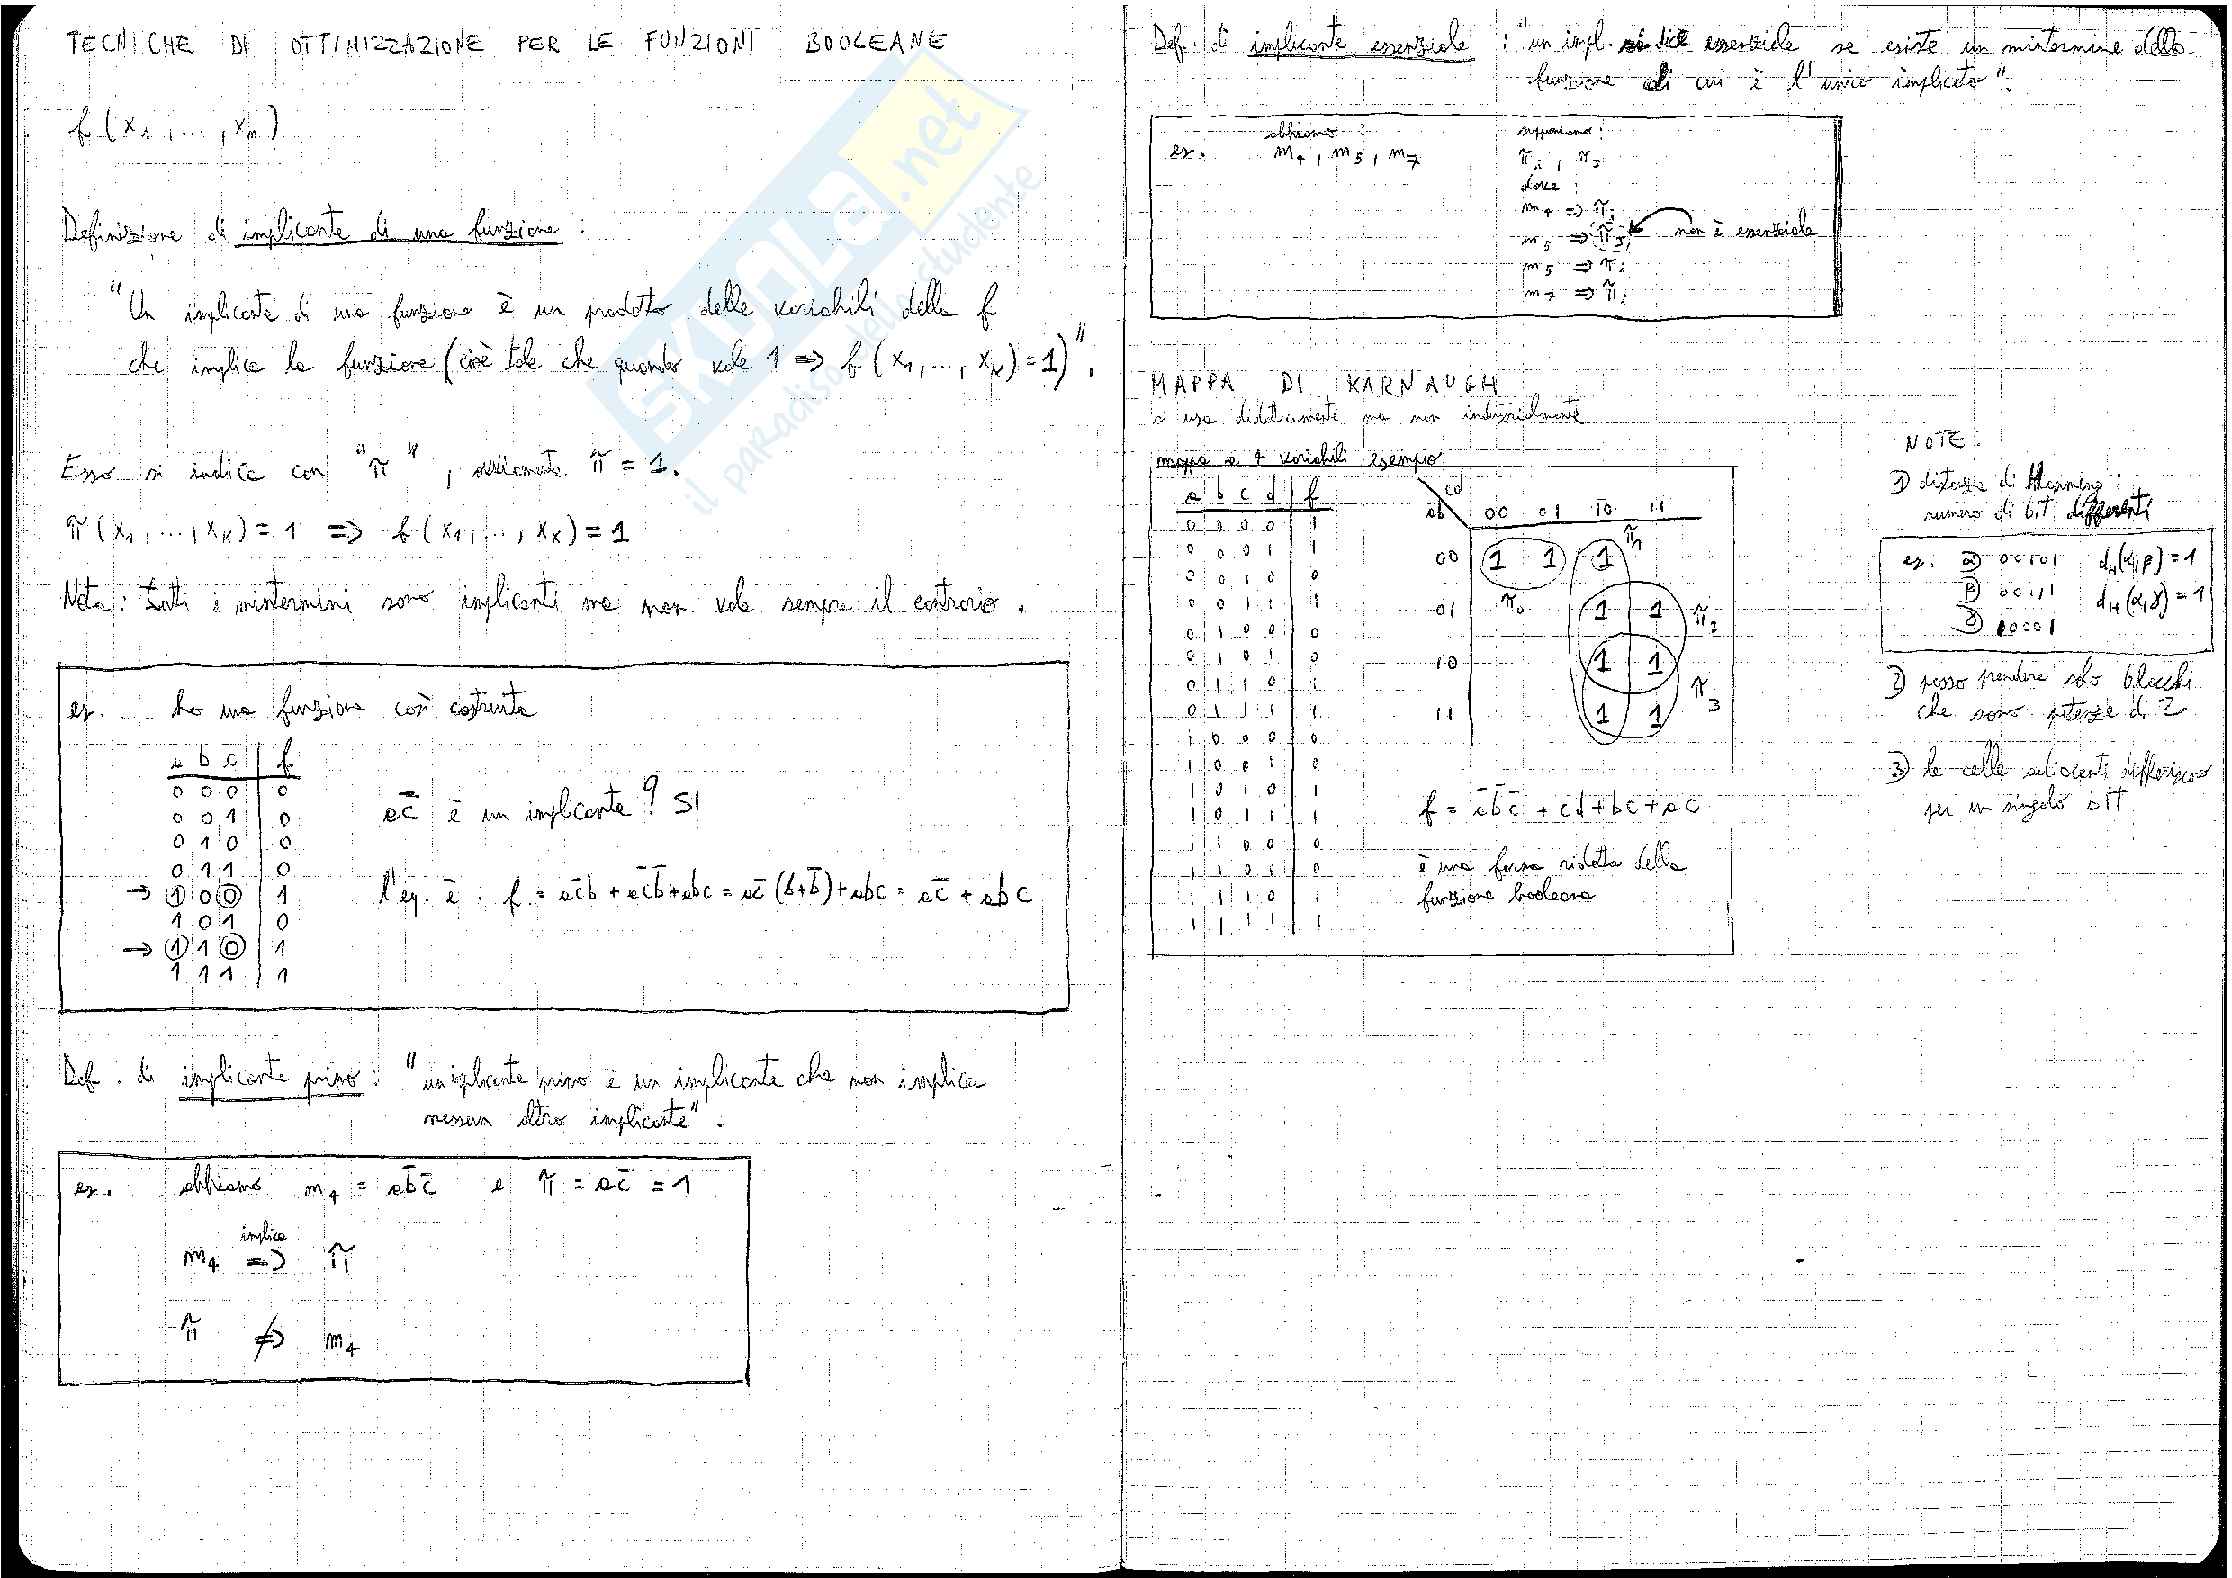 TECNICHE DI OTTIMIZZAZIONE PER LE FUNZIONI BOOLEANE
f (x₁, ..., xₙ)
Definizione di implicante di una funzione :
"Un implicante di una funzione è un prodotto delle variabili della f
che implica la funzione (cioè tale che quando vale 1 => f (x₁, ..., xₖ) = 1)".
Esso si indica con "π", ovviamente π = 1.
π (x₁, ..., xₖ) = 1 => f (x₁, ..., xₖ) = 1
Nota: tutti i mintermini sono implicanti ma non vale sempre il contrario.
es. ho una funzione così costruita
a b c | f
0 0 0 | 0
0 0 1 | 0
0 1 0 | 0
0 1 1 | 0
→ 1 0 0 | 1
1 0 1 | 0
→ 1 1 0 | 1
1 1 1 | 1
ac̄ è un implicante? SI
l'eq. è : f = ac̄b + ac̄b̄ + abc = ac̄ (b+b̄) + abc = ac̄ + abc
Def. di implicante primo: "un implicante primo è un implicante che non implica
nessun altro implicante".
es. abbiamo m₄ = ab̄c̄ e π = ac̄ = 1
implica
m₄ => π
π ≠> m₄
Def. di implicante essenziale : "un impl. si dice essenziale se esiste un mintermine della
funzione di cui è l'unico implicato".
es. abbiamo :
m₄, m₅, m₇
supponiamo :
dove :
m₄ => πᵢ
m₅ => πⱼ non è essenziale
m₅ => πᵢ
m₇ => πᵢ
MAPPA DI KARNAUGH
si usa didatticamente ma non industrialmente
mappa a 4 variabili esempio
a b c d | f
0 0 0 0 | 1
0 0 0 1 | 1
0 0 1 0 | 0
0 0 1 1 | 1
0 1 0 0 | 0
0 1 0 1 | 0
0 1 1 0 | 1
0 1 1 1 | 1
1 0 0 0 | 0
1 0 0 1 | 0
1 0 1 0 | 1
1 0 1 1 | 1
1 1 0 0 | 0
1 1 0 1 | 0
1 1 1 0 | 1
1 1 1 1 | 1
cd
ab 00 01 10 11
π₁
00 1 1 1
π₀
01 1 1 π₂
10 1 1
π₃
11 1 1
f = āb̄c̄ + cd + bc + ac
è una forma ridotta della
funzione booleana
NOTE :
1) distanza di Hamming :
numero di bit differenti
es. α) 00101 dH(α,β) = 1
β) 00111 dH(α,γ) = 1
γ) 10001
2) posso prendere solo blocchi
che sono potenze di 2
3) le celle adiacenti differiscono
per un singolo BIT
SKUOLA.net
il paradiso dello studente